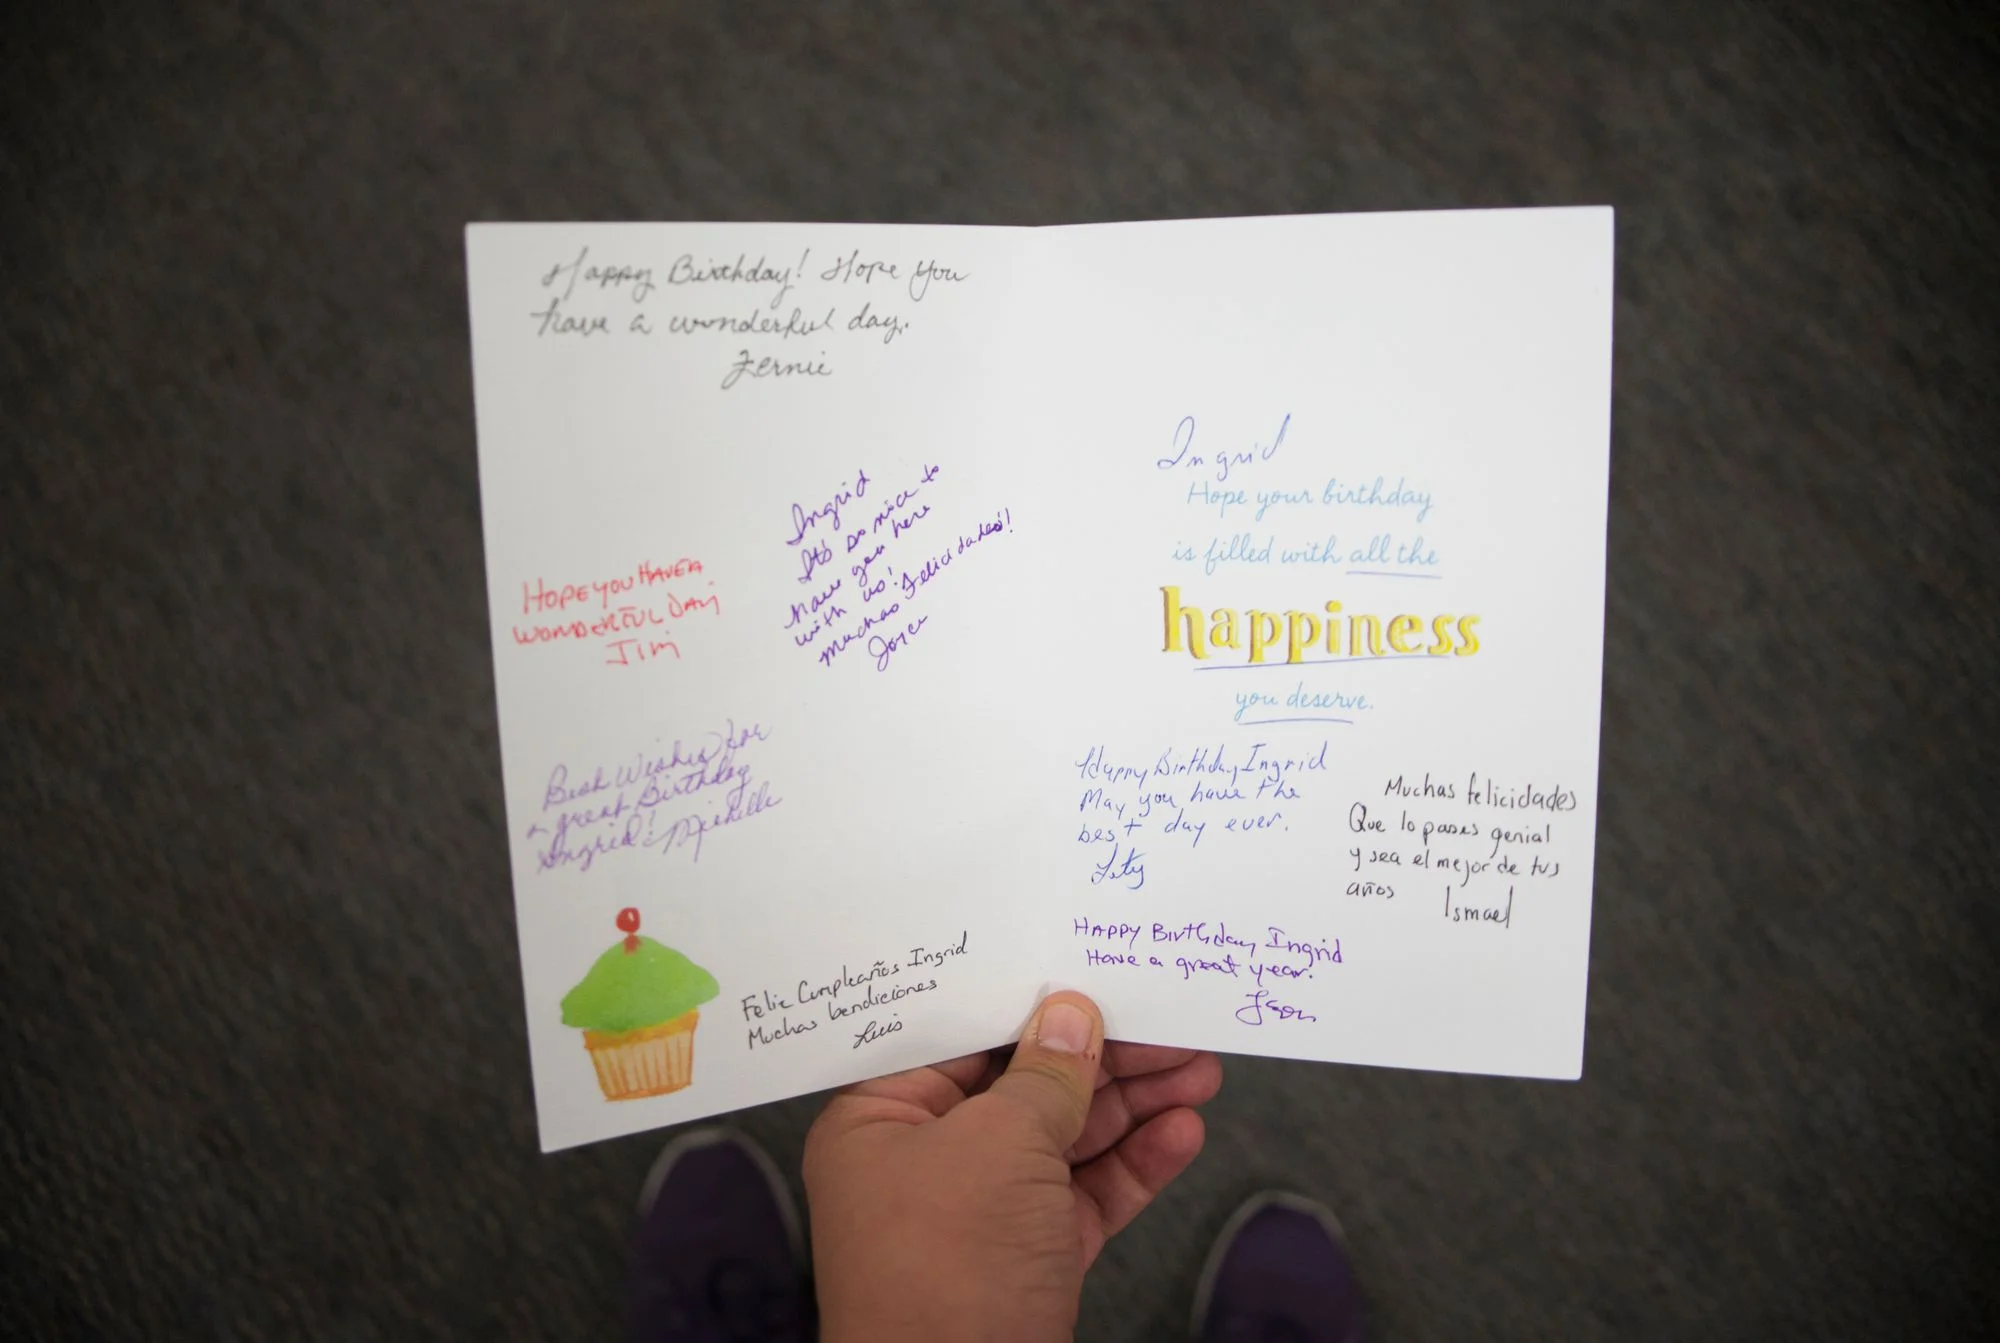 Happy Birthday! Hope you
have a wonderful day.
Fernie
Ingrid
It's so nice to
have you here
with us!
muchas felicidades!
Joyce
HOPE YOU HAVE A
WONDERFUL DAY
Jim
Best Wishes for
a great Birthday
Ingrid! Michelle
Feliz Cumpleaños Ingrid
Muchas bendiciones
Luis
Ingrid
Hope your birthday
is filled with all the
happiness
you deserve.
Happy Birthday Ingrid
May you have the
best day ever.
Lety
Muchas felicidades
Que lo pases genial
y sea el mejor de tus
años
Ismael
HAPPY Birthday Ingrid
Have a great year.